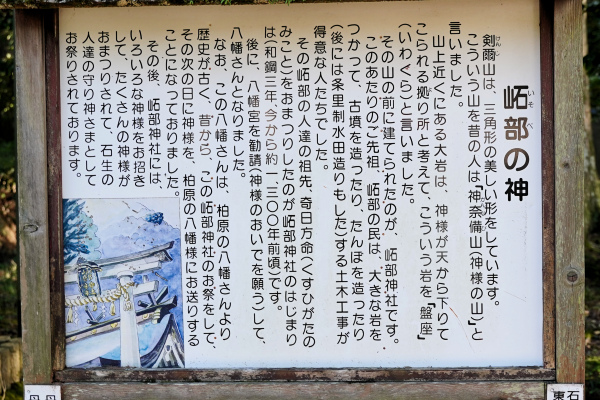 岼部の神
いそべ
剣爾山は、三角形の美しい形をしています。
けんじ
こういう山を昔の人は『神奈備山（神様の山）』と
言いました。
山上近くにある大岩は、神様が天から下りて
こられる拠り所と考えて、こういう岩を『盤座
（いわくら）』と言いました。
その山の前に建てられたのが、岼部神社です。
このあたりのご先祖、岼部の民は、大きな岩を
つかって、古墳を造ったり、たんぼを造ったり
（後には条里制水田造りもした）する土木工事が
得意な人たちでした。
その岼部の人達の祖先、奇日方命（くすひがたの
みこと）をおまつりしたのが岼部神社のはじまり
は（和銅三年、今から約一、三〇〇年前頃）です。
後に、八幡宮を勧請（神様のおいでを願う）して、
八幡さんとなりました。
なお、この八幡さんは、柏原の八幡さんより
歴史が古く、昔から、この岼部神社のお祭をして、
その次の日に神様を、柏原の八幡様にお送りする
ことになっておりました。
その後、岼部神社には、
いろいろな神様をお招き
して、たくさんの神様が
おまつりされて、石生の
人達の守り神さまとして
お祭りされております。